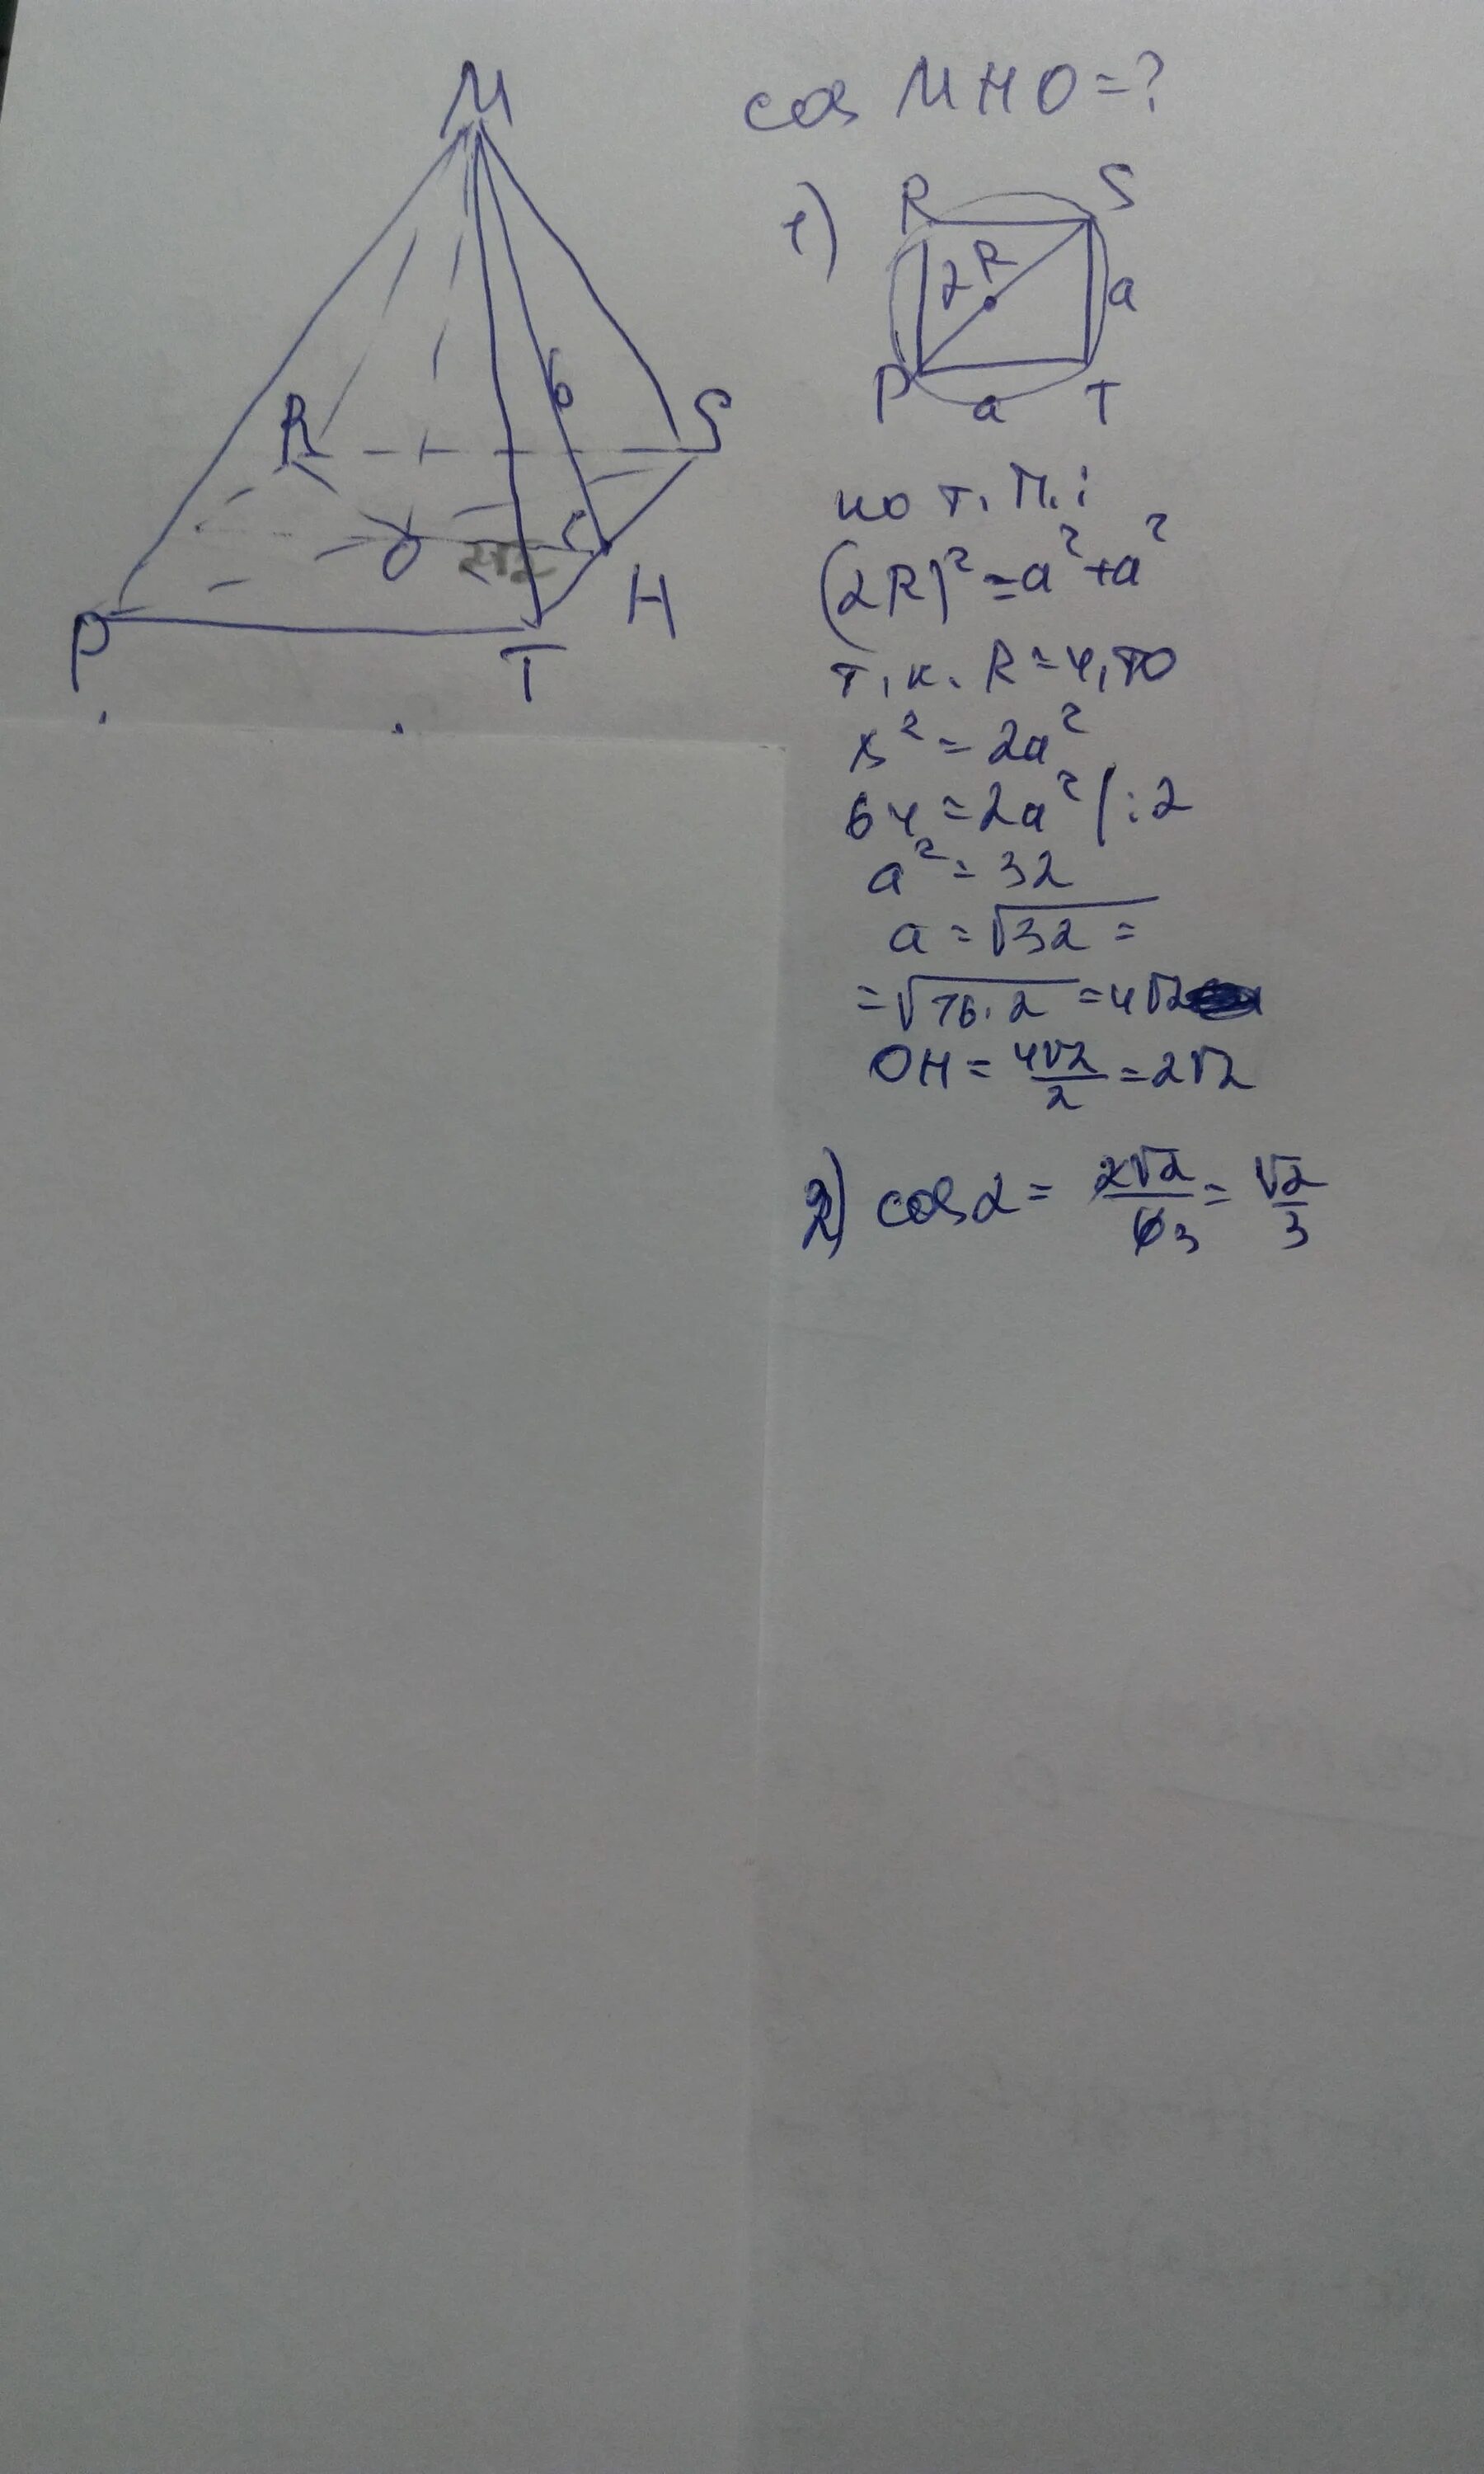 M
R
S
6
O
P
T
H
cos MHO=?
1)
R
S
2R
a
P
a
T
по т. П.:
(2R)²=a²+a²
т.к. R=4, то
8²=2a²
64=2a² /:2
a²=32
a=√32=
=√16·2=4√2
OH=4√2/2=2√2
2) cosα=2√2/6 3=√2/3